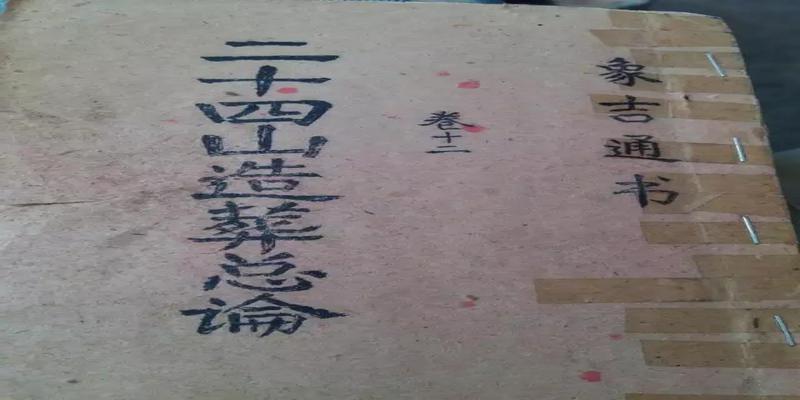 象吉通书
卷十二
二十四山造葬总论